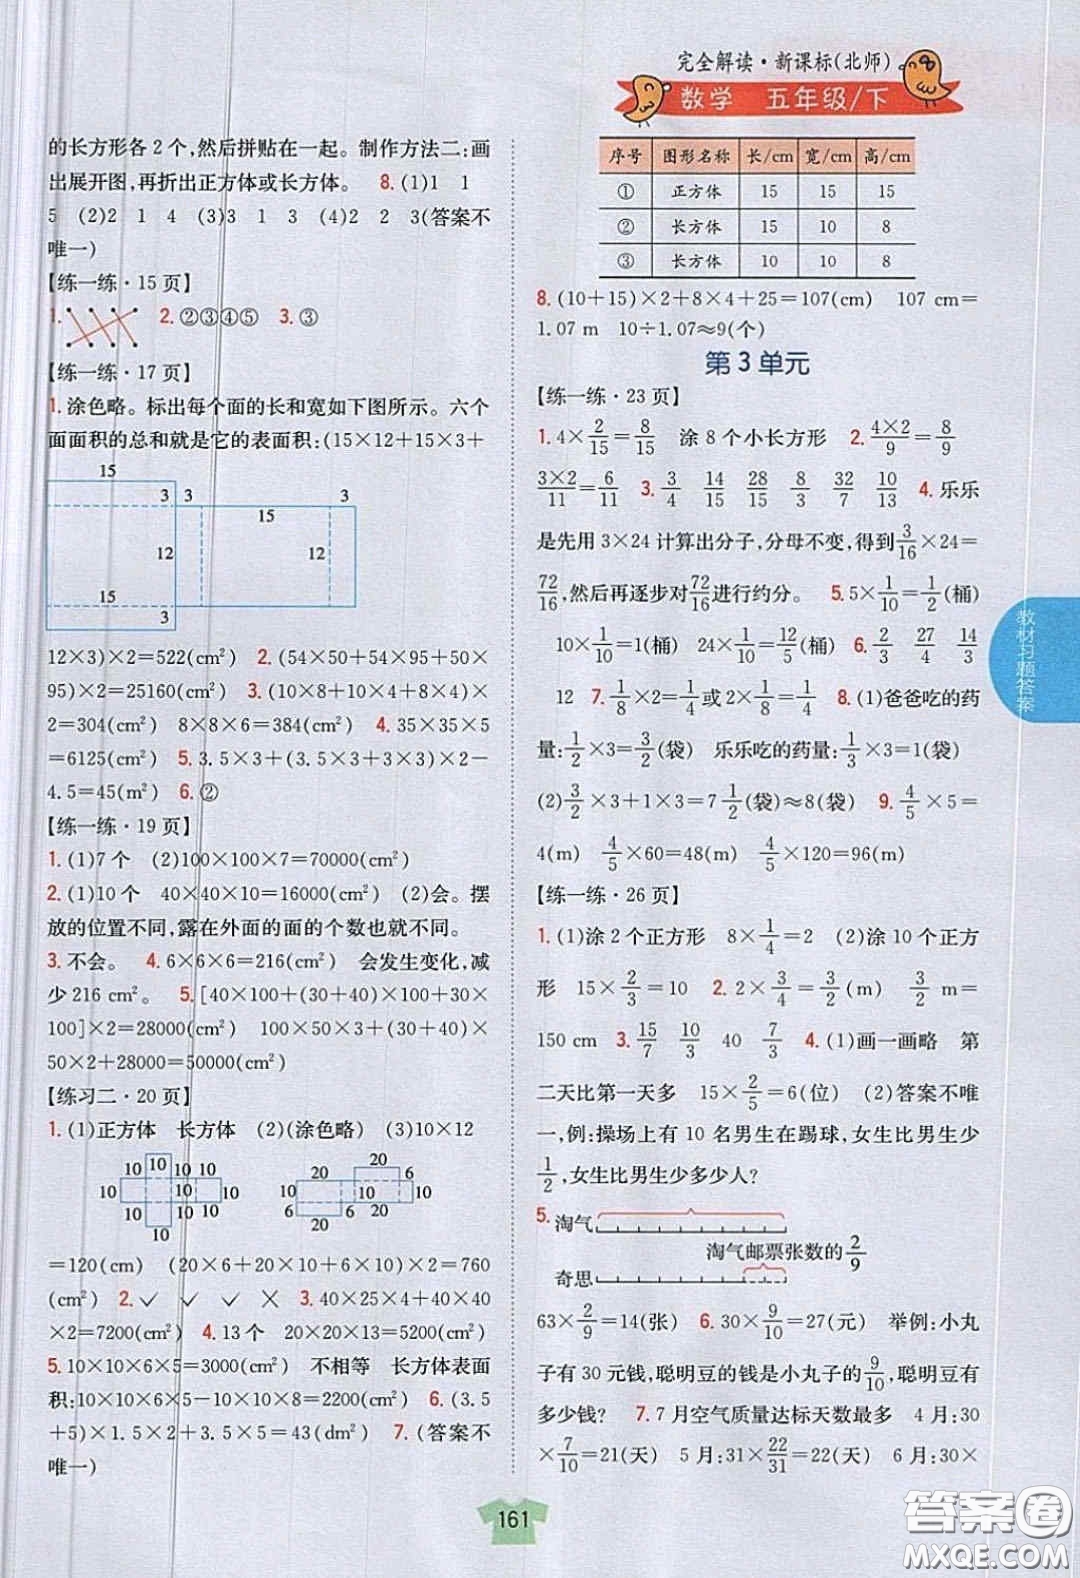 完全解读·新课标(北师)
数学 五年级/下
的长方形各2个,然后拼贴在一起。制作方法二:画
出展开图,再折出正方体或长方体。 8.(1)1 1
5 (2)2 1 4 (3)3 1 3 (4)2 2 3(答案不
唯一)
【练一练·15页】
1. 2.②③④⑤ 3.③
【练一练·17页】
1.涂色略。标出每个面的长和宽如下图所示。六个
面面积的总和就是它的表面积:(15×12+15×3+
15
3 3 3
15
12 12
15
3
12×3)×2=522(cm²) 2.(54×50+54×95+50×
95)×2=25160(cm²) 3.(10×8+10×4+8×4)
×2=304(cm²) 8×8×6=384(cm²) 4.35×35×5
=6125(cm²) 5.3.5×3+(3.5×3+3×3)×2−
4.5=45(m²) 6.②
【练一练·19页】
1.(1)7个 (2)100×100×7=70000(cm²)
2.(1)10个 40×40×10=16000(cm²) (2)会。摆
放的位置不同,露在外面的面的个数也就不同。
3.不会。 4.6×6×6=216(cm²) 会发生变化,减
少216 cm²。 5.[40×100+(30+40)×100+30×
100]×2=28000(cm²) 100×50×3+(30+40)×
50×2+28000=50000(cm²)
【练习二·20页】
1.(1)正方体 长方体 (2)(涂色略) (3)10×12
10 10 10 10 20 20 6
10 10 10 10 10 10
10 10 10 6 20 20
10
=120(cm) (20×6+20×10+6×10)×2=760
(cm²) 2.✓ ✓ ✓ × 3.40×25×4+40×40
×2=7200(cm²) 4.13个 20×20×13=5200(cm²)
5.10×10×6×5=3000(cm²) 不相等 长方体表面
积:10×10×6×5−10×10×8=2200(cm²) 6.(3.5
+5)×1.5×2+3.5×5=43(dm²) 7.(答案不
唯一)
序号 图形名称 长/cm 宽/cm 高/cm
① 正方体 15 15 15
② 长方体 15 10 8
③ 长方体 10 10 8
8.(10+15)×2+8×4+25=107(cm) 107 cm=
1.07 m 10÷1.07≈9(个)
第3单元
【练一练·23页】
1.4×2/15=8/15 涂8个小长方形 2.4×2/9=8/9
3×2/11=6/11 3.3/4 14/15 28/15 8/3 32/7 10/13 4.乐乐
是先用3×24计算出分子,分母不变,得到3/16×24=
72/16,然后再逐步对72/16进行约分。 5.5×1/10=1/2(桶)
10×1/10=1(桶) 24×1/10=12/5(桶) 6.2/3 27/4 14/3
12 7.1/8×2=1/4或2×1/8=1/4 8.(1)爸爸吃的药
量:1/2×3=3/2(袋) 乐乐吃的药量:1/3×3=1(袋)
(2)3/2×3+1×3=7 1/2(袋)≈8(袋) 9.4/5×5=
4(m) 4/5×60=48(m) 4/5×120=96(m)
【练一练·26页】
1.(1)涂2个正方形 8×1/4=2 (2)涂10个正方
形 15×2/3=10 2.2×3/4=3/2(m) 3/2 m=
150 cm 3.15/7 10/3 40 7/3 4.(1)画一画略 第
二天比第一天多 15×2/5=6(位) (2)答案不唯
一,例:操场上有10名男生在踢球,女生比男生少
1/2,女生比男生少多少人?
5.淘气
淘气邮票张数的2/9
奇思
63×2/9=14(张) 6.30×9/10=27(元) 举例:小丸
子有30元钱,聪明豆的钱是小丸子的9/10,聪明豆有
多少钱? 7.7月空气质量达标天数最多 4月:30
×7/10=21(天) 5月:31×22/31=22(天) 6月:30×
教材习题答案
161
答案圈
MXQE.COM